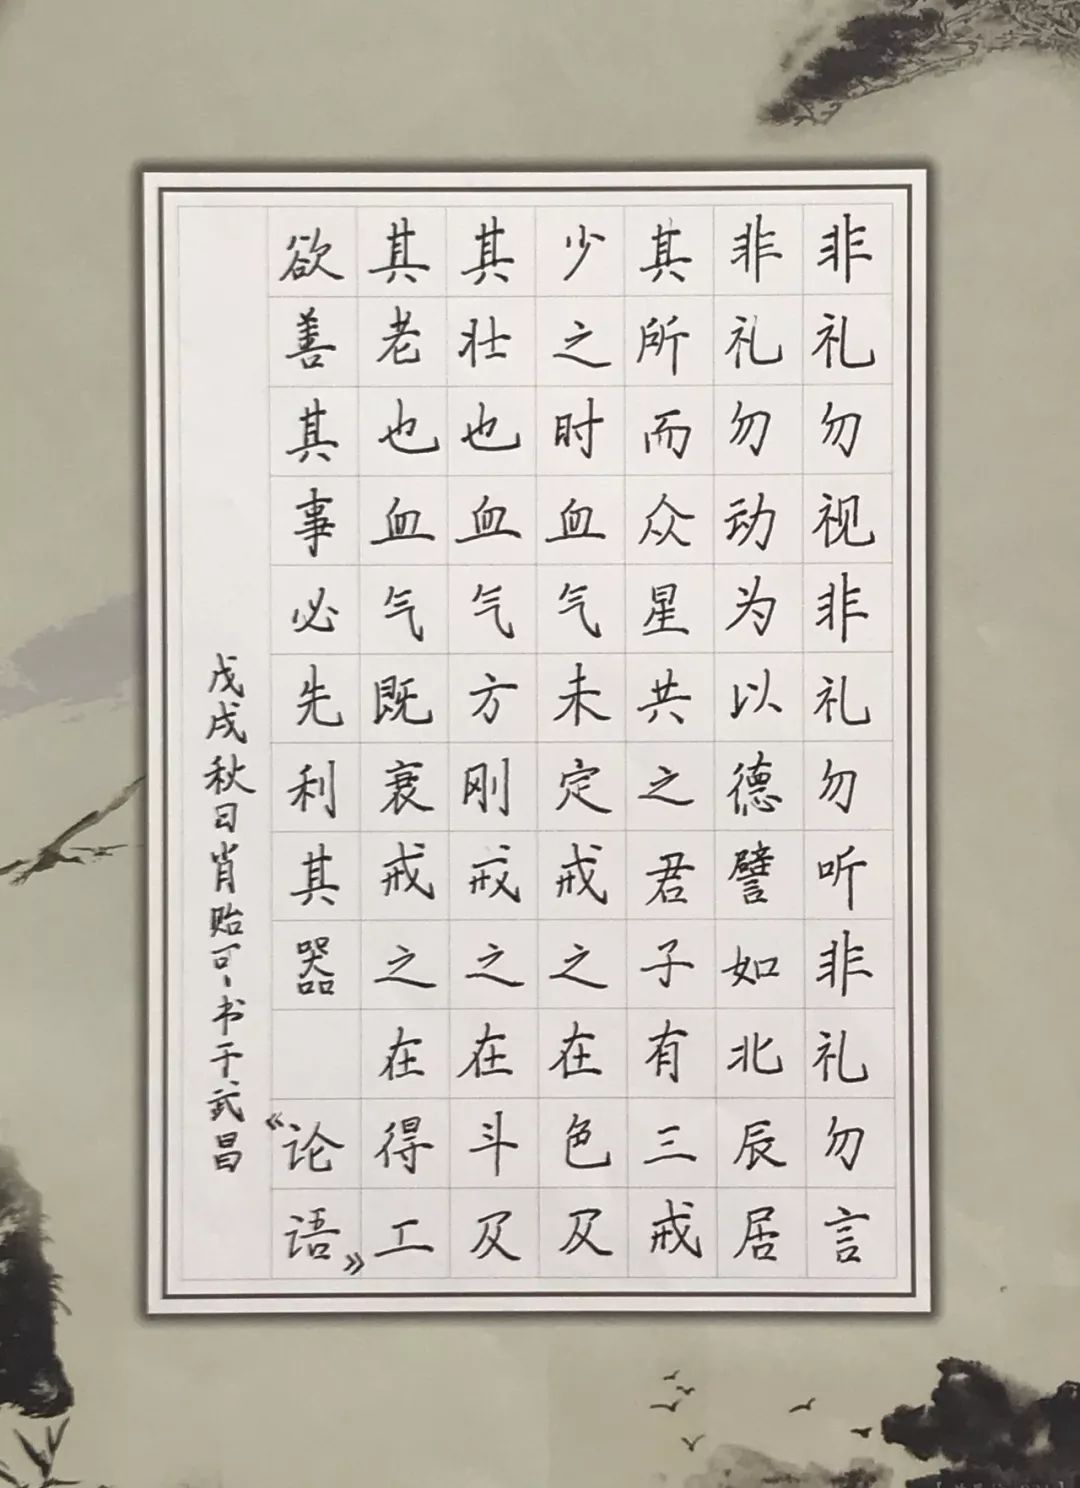 非礼勿视非礼勿听非礼勿言
非礼勿动为以德譬如北辰居
其所而众星共之君子有三戒
少之时血气未定戒之在色及
其壮也血气方刚戒之在斗及
其老也血气既衰戒之在得工
欲善其事必先利其器 《论语》
戊戌秋日肖贻可书于武昌